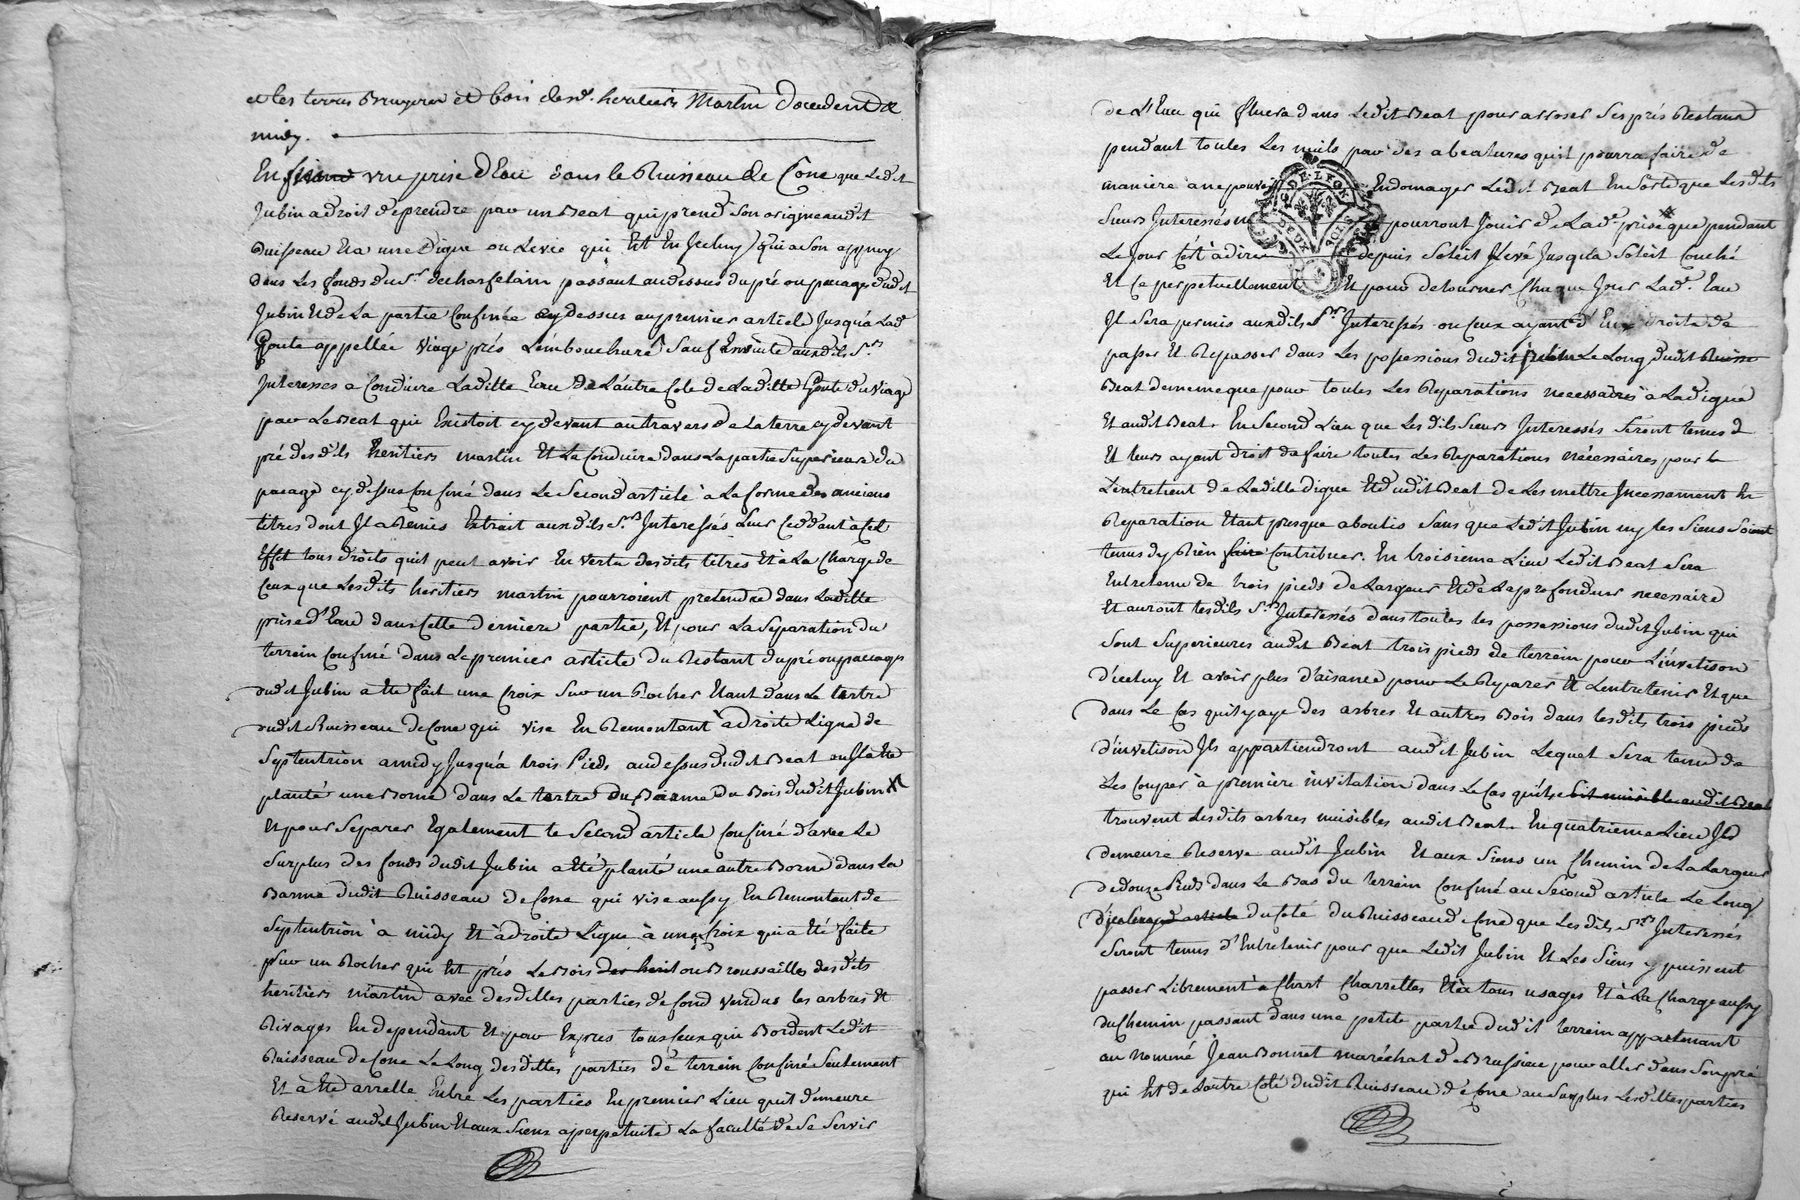 et les terres Bruyeres et bois desd. heritiers Martin d'occident et
midy.
Enfin une prise d'Eau dans le Ruisseau de Cone que Ledit
Jubin a droit d'e prendre par un Beat qui prend son origine audit
Ruisseau Et a une Digue ou Levée qui Est En Iceluy qui a son appuy
dans Les fonds du Sr. dechasselain passant au dessus du pré ou pacage dudit
Jubin Et de La partie Confinée cy dessus au premier article Jusqu'a Lad.
Goute appellée viage prés L'embouchure Sauf Ensuite auxdits Srs
Interessés a Conduire Laditte Eau De L'autre Coté de Laditte Goute du viage
par Le Beat qui Existoit cy devant au travers de La terre cy devant
pré desdits heritiers martin Et La Conduire dans La partie Superieure du
pacage cy dessus Confiné dans Le Second article à La forme des anciens
titres dont Il a Remis Extrait auxdits Srs Interessés Leur Ceddant à cet
Effet tous droits qu'il peut avoir En vertu desdits titres Et à La Charge de
Ceux que Lesdits heritiers martin pourroient pretendre dans Laditte
prise d'Eau dans Cette derniere partie, Et pour La Separation du
terrein Confiné dans Le premier article du Restant du pré ou paccage
dudit Jubin a Eté fait une Croix Sur un Rocher Etant dans Le tertre
dudit Ruisseau de Cone qui vise En Remontant à droite Ligne de
Septentrion a midy Jusqu'à trois Pieds au dessus dudit Beat ou Il a Eté
planté une Borne dans Le tertre du Bois dudit Jubin
Et pour Separer Egalement le Second article Confiné d'avec Le
Surplus des fonds dudit Jubin a Eté planté une autre Borne dans La
Barme dudit Ruisseau de Cone qui vise aussy En Remontant de
Septentrion à midy Et à droite Ligne à une Croix qui a Eté faite
Sur un Rocher qui Est prés Le Bois des herit ou Broussailles desdits
heritiers martin avec desdittes parties de fond vendus les arbres Et
Rivages En dependant Et par Exprés tous Ceux qui Bordent Ledit
Ruisseau de Cone Le Long desdittes parties de terrein Confinée Seulement
Et à Eté arrettè Entre Les parties En premier Lieu qu'il demeure
Reservé audit Jubin Et aux Siens a perpetuité La faculté de Se Servir
de L'Eau qui fluera dans Ledit Beat pour arroser Ses prés Restans
pendant toutes Les nuits par des abeatures qu'il pourra faire de
maniere a ne pouvoir Endomager Ledit Beat En Sorte que Lesdits
Sieurs Interessés ne pourront Jouir de Lad. prise que pendant
Le Jour C'est à dire depuis Soleil Levé Jusqu'à Soleil Couché
Et Ce perpetuellement Et pour detourner Chaque Jour Lad. Eau
Il Sera permis auxdits Srs Interessés ou Ceux ayant d'Eux droits de
passer Et Repasser dans Les possessions dudit Jubin Le Long dudit Ruisse
Beat de meme que pour toutes Les Reparations necessaires à La digue
Et audit Beat. En Second Lieu que Lesdits Sieurs Interessés Seront tenus
Et leurs ayant droit de faire toutes Les Reparations nécessaires pour
L'entretient de Laditte digue Et dudit Beat de Les mettre Incessament En
Reparation Etant presque aboutis Sans que Ledit Jubin ny les Siens Soient
tenus d'y Rien faire Contribuer. En troisieme Lieu Ledit Beat Sera
Entretenu de trois pieds de Largeur Et de La profondeur necessaire
Et auront lesdits Srs Interessés dans toutes les possessions dudit Jubin qui
Sont Superieures audit Beat trois pieds de terrein pour L'invetison
d'iceluy Et avoir plus d'aisance pour Le Reparer Et L'entretenir Et que
dans Le Cas qu'il y aye des arbres Et autres Bois dans lesdits trois pieds
d'invetison Ils appartiendront audit Jubin Lequel Sera tenu de
Les Couper à premiere invitation dans Le Cas qu'ils Soit nuisible audit Beat
trouvent Lesdits arbres nuisibles audit Beat. En quatrieme Lieu Il
demeure Reservé audit Jubin Et aux Siens un Chemin de La Largeur
de douze Pieds dans Le Bas du terrein Confiné au Second article Le Long
du Coté du Ruisseau de Cone que Lesdits Srs Interessés
Seront tenus d'Entretenir pour que Ledit Jubin Et Les Siens y puissent
passer Librement à Chart Charrettes Et à tous usages Et à La Charge aussy
du Chemin passant dans une petite partie dudit terrein appartenant
au nommé Jean Bonnet maréchal de Brussieu pour aller dans Son pré
qui Est de L'autre Coté dudit Ruisseau de Cone au Surplus Lesdittes parties
DE LYON
DEUX SOLS